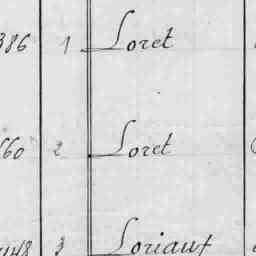 386 1 Loret
660 2 Loret
448 3 Loriaux